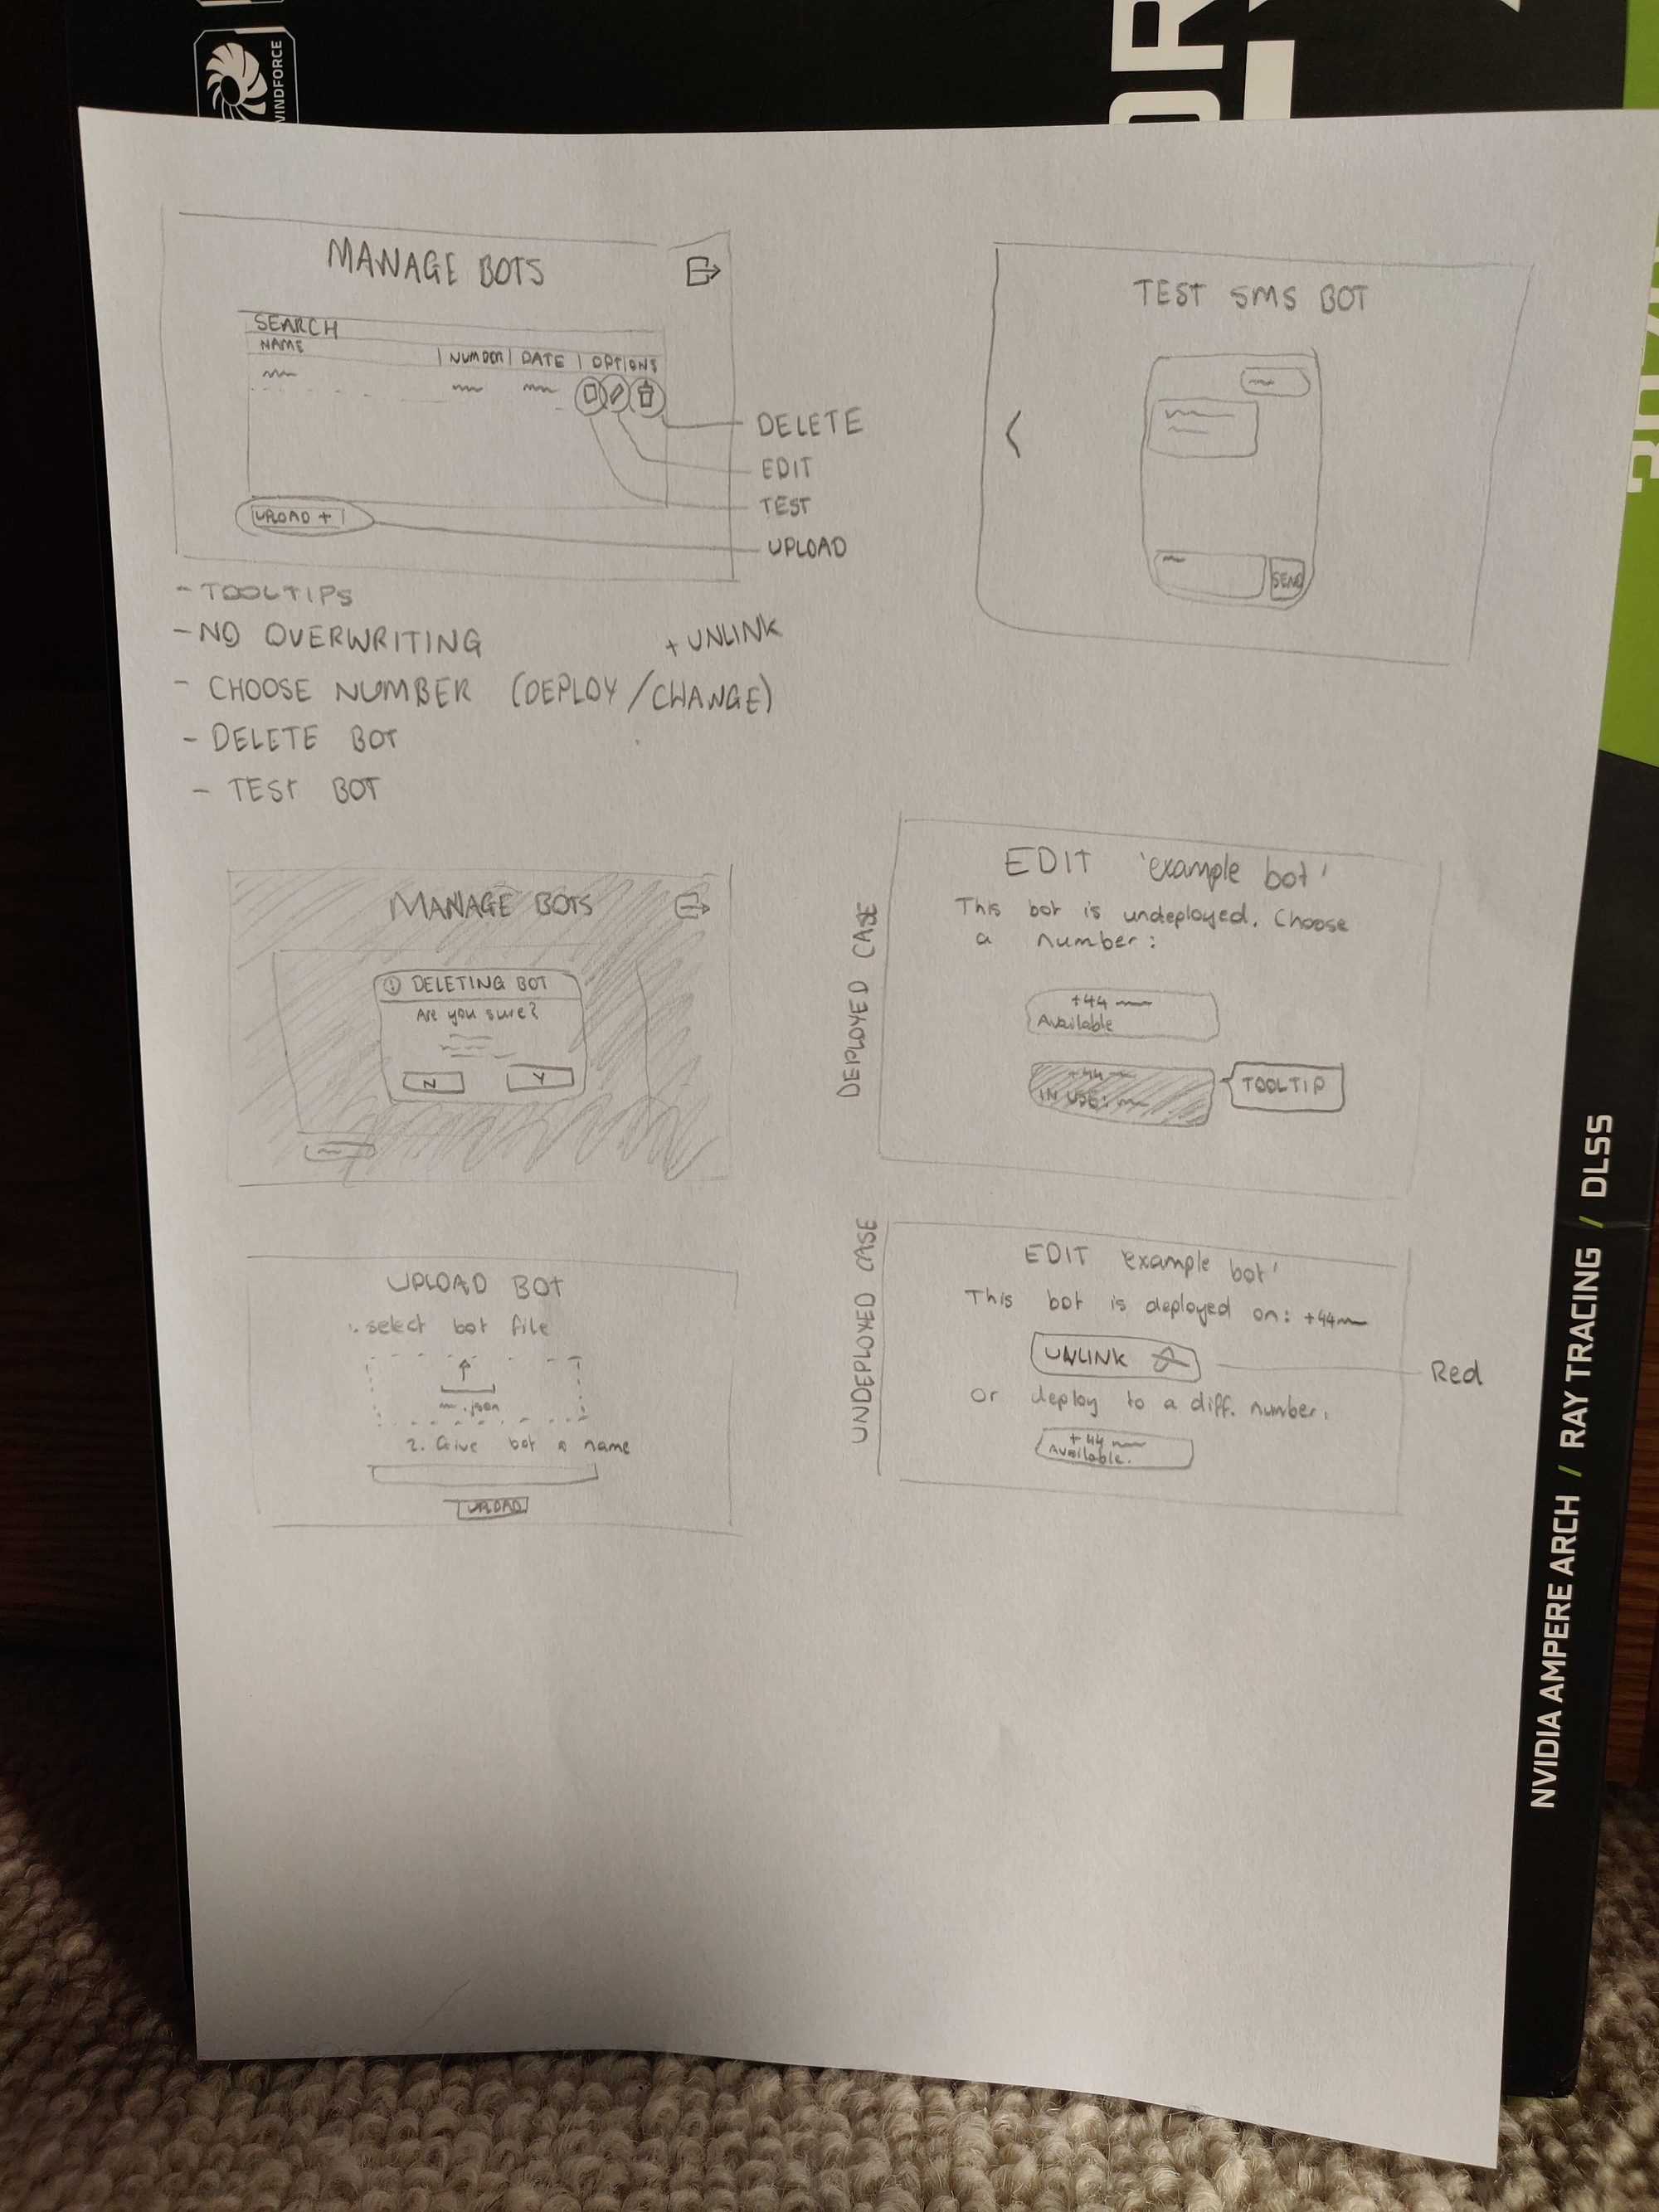 WINDFORCE
MANAGE BOTS
SEARCH
NAME | NUMBER | DATE | OPTIONS
DELETE
EDIT
TEST
UPLOAD + |
UPLOAD
- TOOLTIPS
- NO OVERWRITING
+ UNLINK
- CHOOSE NUMBER (DEPLOY / CHANGE)
- DELETE BOT
- TEST BOT
TEST SMS BOT
<
SEND
MANAGE BOTS
! DELETING BOT
Are you sure?
N Y
DEPLOYED CASE
EDIT 'example bot'
This bot is undeployed. Choose
a number:
+44
Available
+44
IN USE:
TOOLTIP
UPLOAD BOT
1. select bot file
.json
2. Give bot a name
UPLOAD
UNDEPLOYED CASE
EDIT 'example bot'
This bot is deployed on: +44
UNLINK
Red
Or deploy to a diff. number.
+44
Available.
NVIDIA AMPERE ARCH / RAY TRACING / DLSS